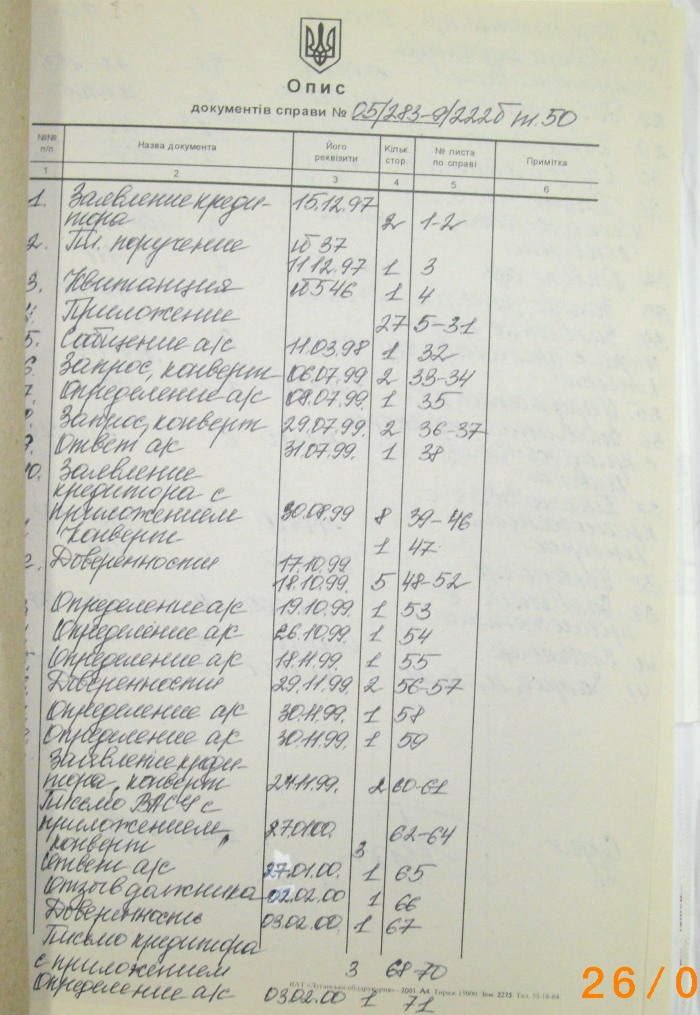 Опис
документів справи № 05/283-9/222б т.50
№№ п/п Назва документа Його реквізити Кільк. стор. № листа по справі Примітка
1 2 3 4 5 6
1. Заявление креди- 15.12.97
тора 2 1-2
2. Пл. поручение № 37
11.12.97 1 3
3. Квитанция № 546 1 4
4. Приложение
27 5-31
5. Сообщение а/с 11.03.98 1 32
6. Запрос, конверт 06.07.99 2 33-34
7. Определение а/с 08.07.99. 1 35
8. Запрос, конверт 29.07.99. 2 36-37
9. Ответ а/с 31.07.99. 1 38
10. Заявление
кредитора с
приложением 30.08.99 8 39-46
Конверт
1 47.
2. Доверенности 17.10.99
18.10.99. 5 48-52
Определение а/с 19.10.99 1 53
Определение а/с 26.10.99. 1 54
Определение а/с 18.11.99. 1 55
Доверенности 29.11.99. 2 56-57
Определение а/с 30.11.99. 1 58
Определение а/с 30.11.99. 1 59
Заявление креди-
тора, конверт 24.11.99. 2 60-61
Письмо ВАСУ с
приложением 27.01.00. 62-64
конверт 3
Ответ а/с 27.01.00. 1 65
Отзыв должника 02.02.00 1 66
Доверенность 03.02.00. 1 67
Письмо кредитора
с приложением 3 68-70
Определение а/с 03.02.00 1 71
26/0